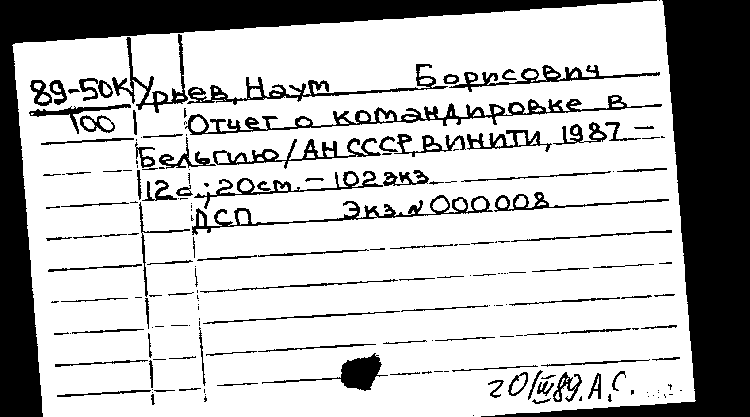 89-50К Урьев, Наум Борисович
100 Отчет о командировке в
Бельгию/АН СССР, ВИНИТИ, 1987 –
12 с.; 20 см. – 102 экз.
ДСП Экз. № 000008
20/III 89. А.С.